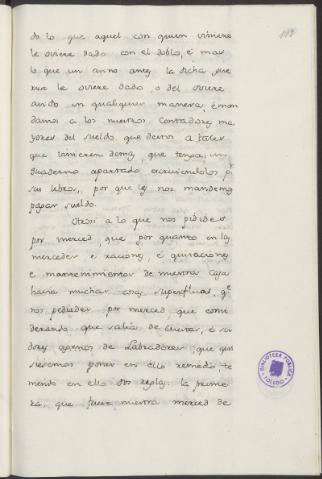 117
do lo que aquel con quien viniere
le oviere dado con el doblo, é mas
lo que un anno antes la dicha
le oviere dado o del oviere
avido en qualquier manera, é man
damos a los nuestros Contadores ma
yores del sueldo que deven a tales
que vinieren
quaderno apartado escriviendolos
sus libros, por que les non mandemos
pagar sueldo.
Otrosi a lo que nos pidiestes
por merced, que por quanto en las
mercedes, é raciones, é quitaciones
é mantenimientos de nuestra casa
havia muchas cosas superfluas, qe
nos pediades por merced, que consi
derando que salia de cuestas, é su
dores agenos de Labradores, que qui
siesemos poner en ello remedio, te
niendo en ello dos reglas: la prime
ra, que fuese nuestra merced de
BIBLIOTECA PUBLICA
TOLEDO